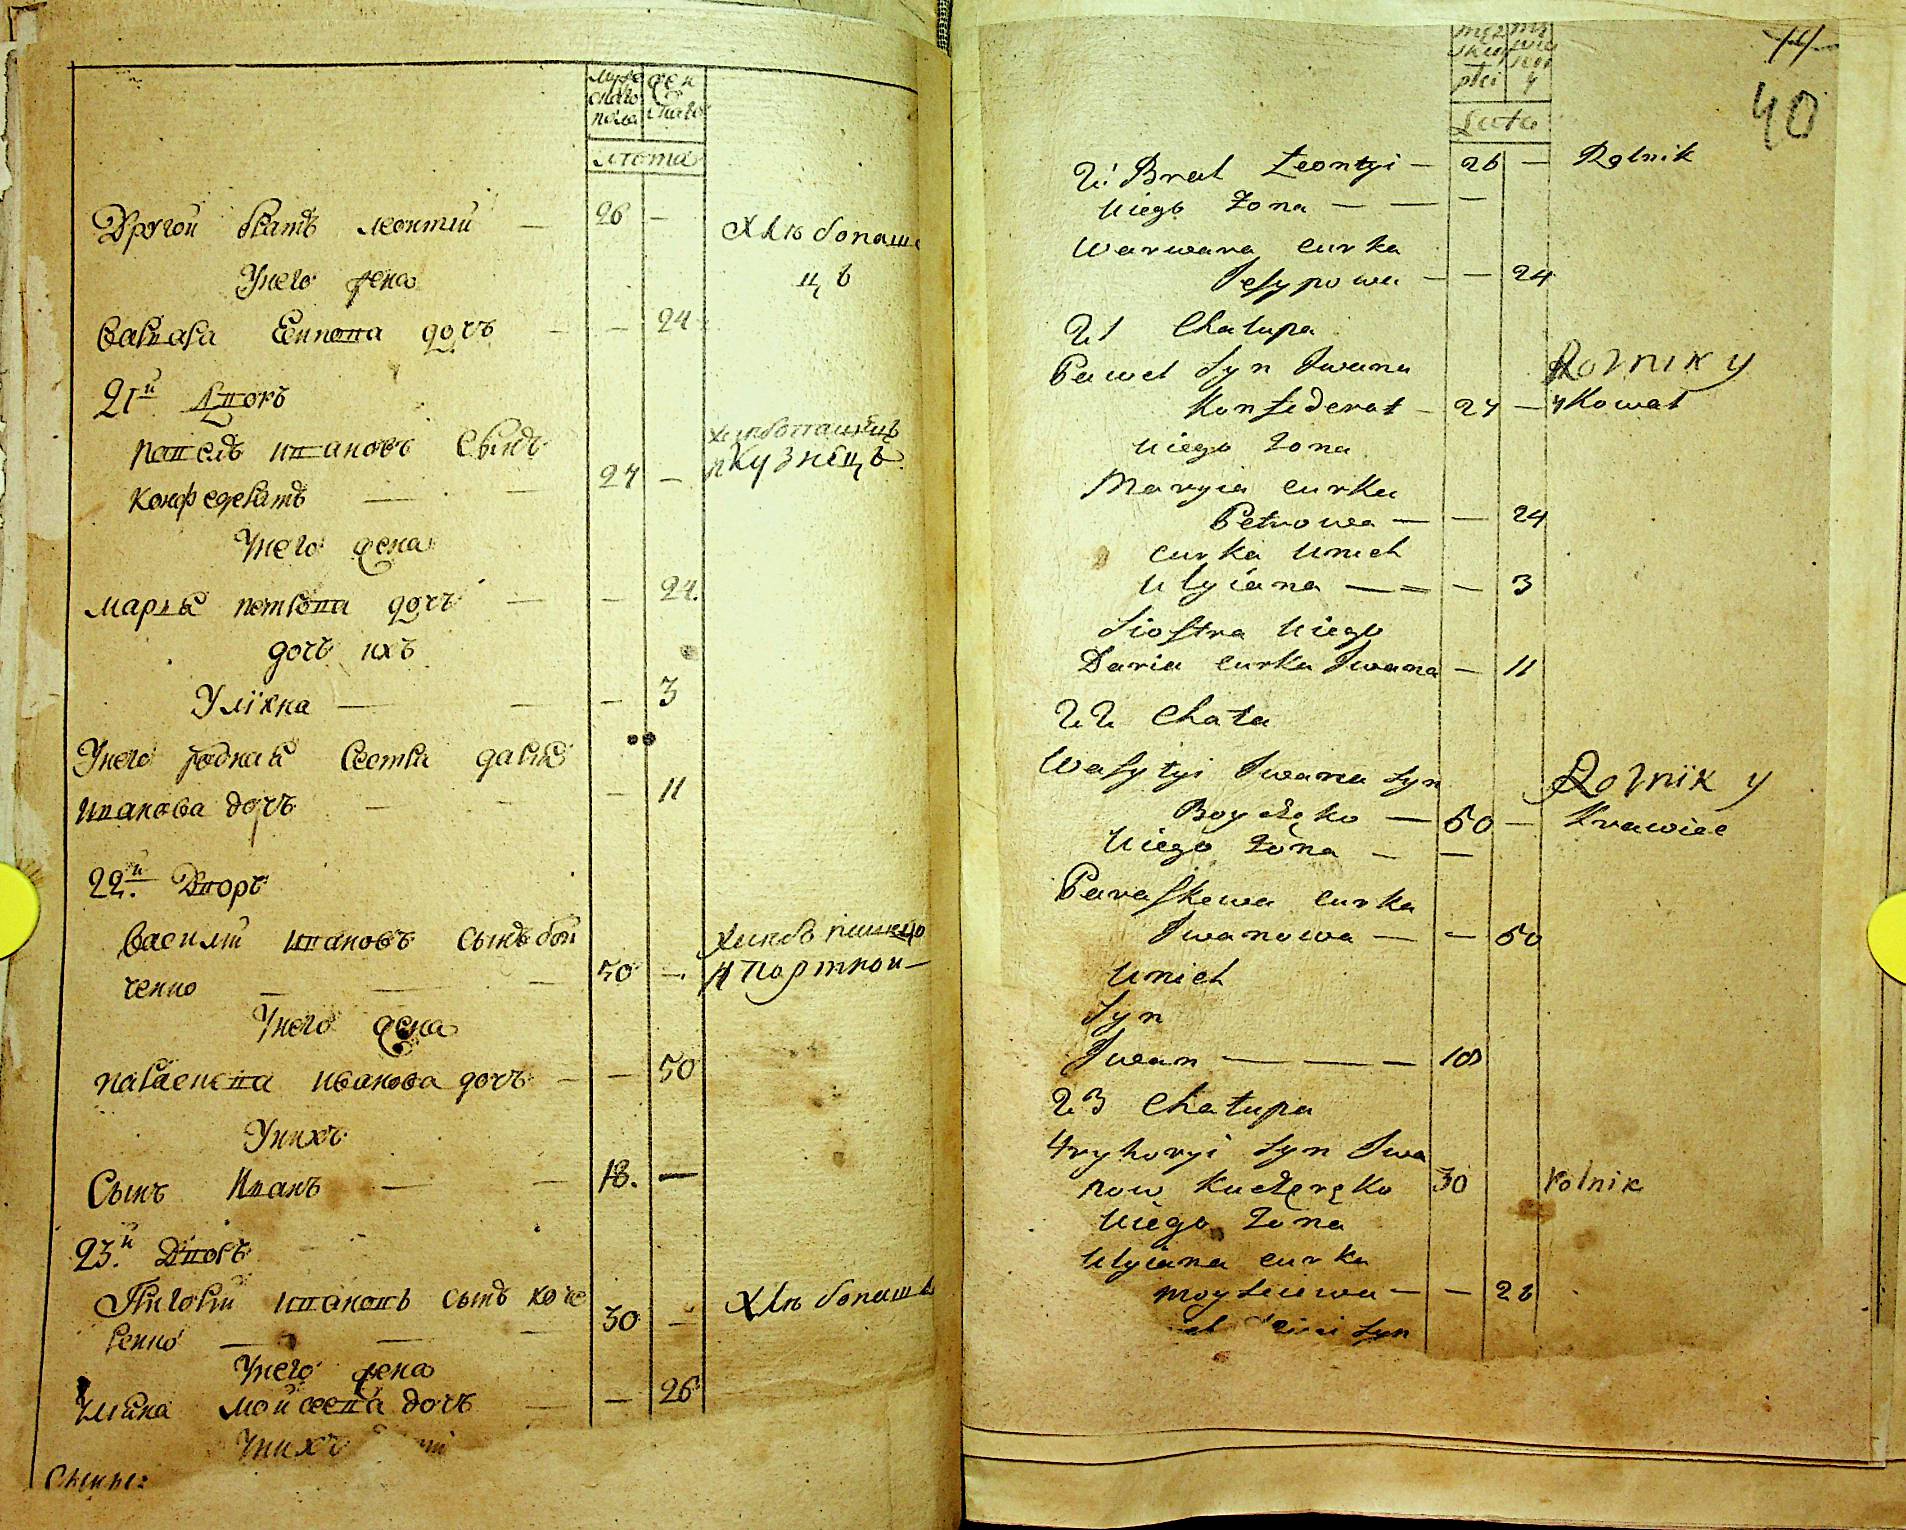 мужескаго пола
женскаго
лѣта
Другой братъ леонтій — 26 — Хлѣбопаше
Унего жена цъ
варвара Есипова дочь — — 24
21й Дворъ
павелъ ивановъ сынъ хлѣбопашецъ
конфедератъ — — 24 — и Кузнецъ
Унего жена
марья петрова дочь — — 24.
дочь ихъ
Уліяна — — — 3
Унего родная сестра дарья
иванова дочь — — — 11
22.й Дворъ
василій ивановъ сынъ бой хлѣбопашецъ
ченко — — — 50 — и Портной —
Унего жена
параскева иванова дочь — — 50
Унихъ
Сынъ Иванъ — — 18. —
23.й Дворъ
Григорій ивановъ сынъ коче Хлѣбопаше
ренко — — — 30 —
Унего жена
ульяна мойсеева дочь — — 26
Унихъ
Сыны:
44
40
męzskiey płci
Lata
2i Brat Leontyi — 26 — Rolnik
Uiego Zona — — —
Warwara curka
Jesypowa — — 24
21 Chałupa
Paweł Syn Iwana Rolnik y
Konfederat — 24 — y Kowal
Uiego Zona
Maryia curka
Petrowa — — 24
curka Unich
Ulyiana — = — 3
Siostra Uiego
Daria curka Iwana — 11
22 Chata
Wasylyi Iwana Syn Rolnik y
Boyczęko — 50 — Krawiec
Uiego Zona — —
Paraskewa curka
Iwanowa — — 50
Unich
Syn
Iwan — — — 18
23 Chałupa
Hryhoryi Syn Iwa
now Kuczeręko 30 rolnik
Uiego Zona
Ulyiana curka
Moysiewa — — 26
Syn